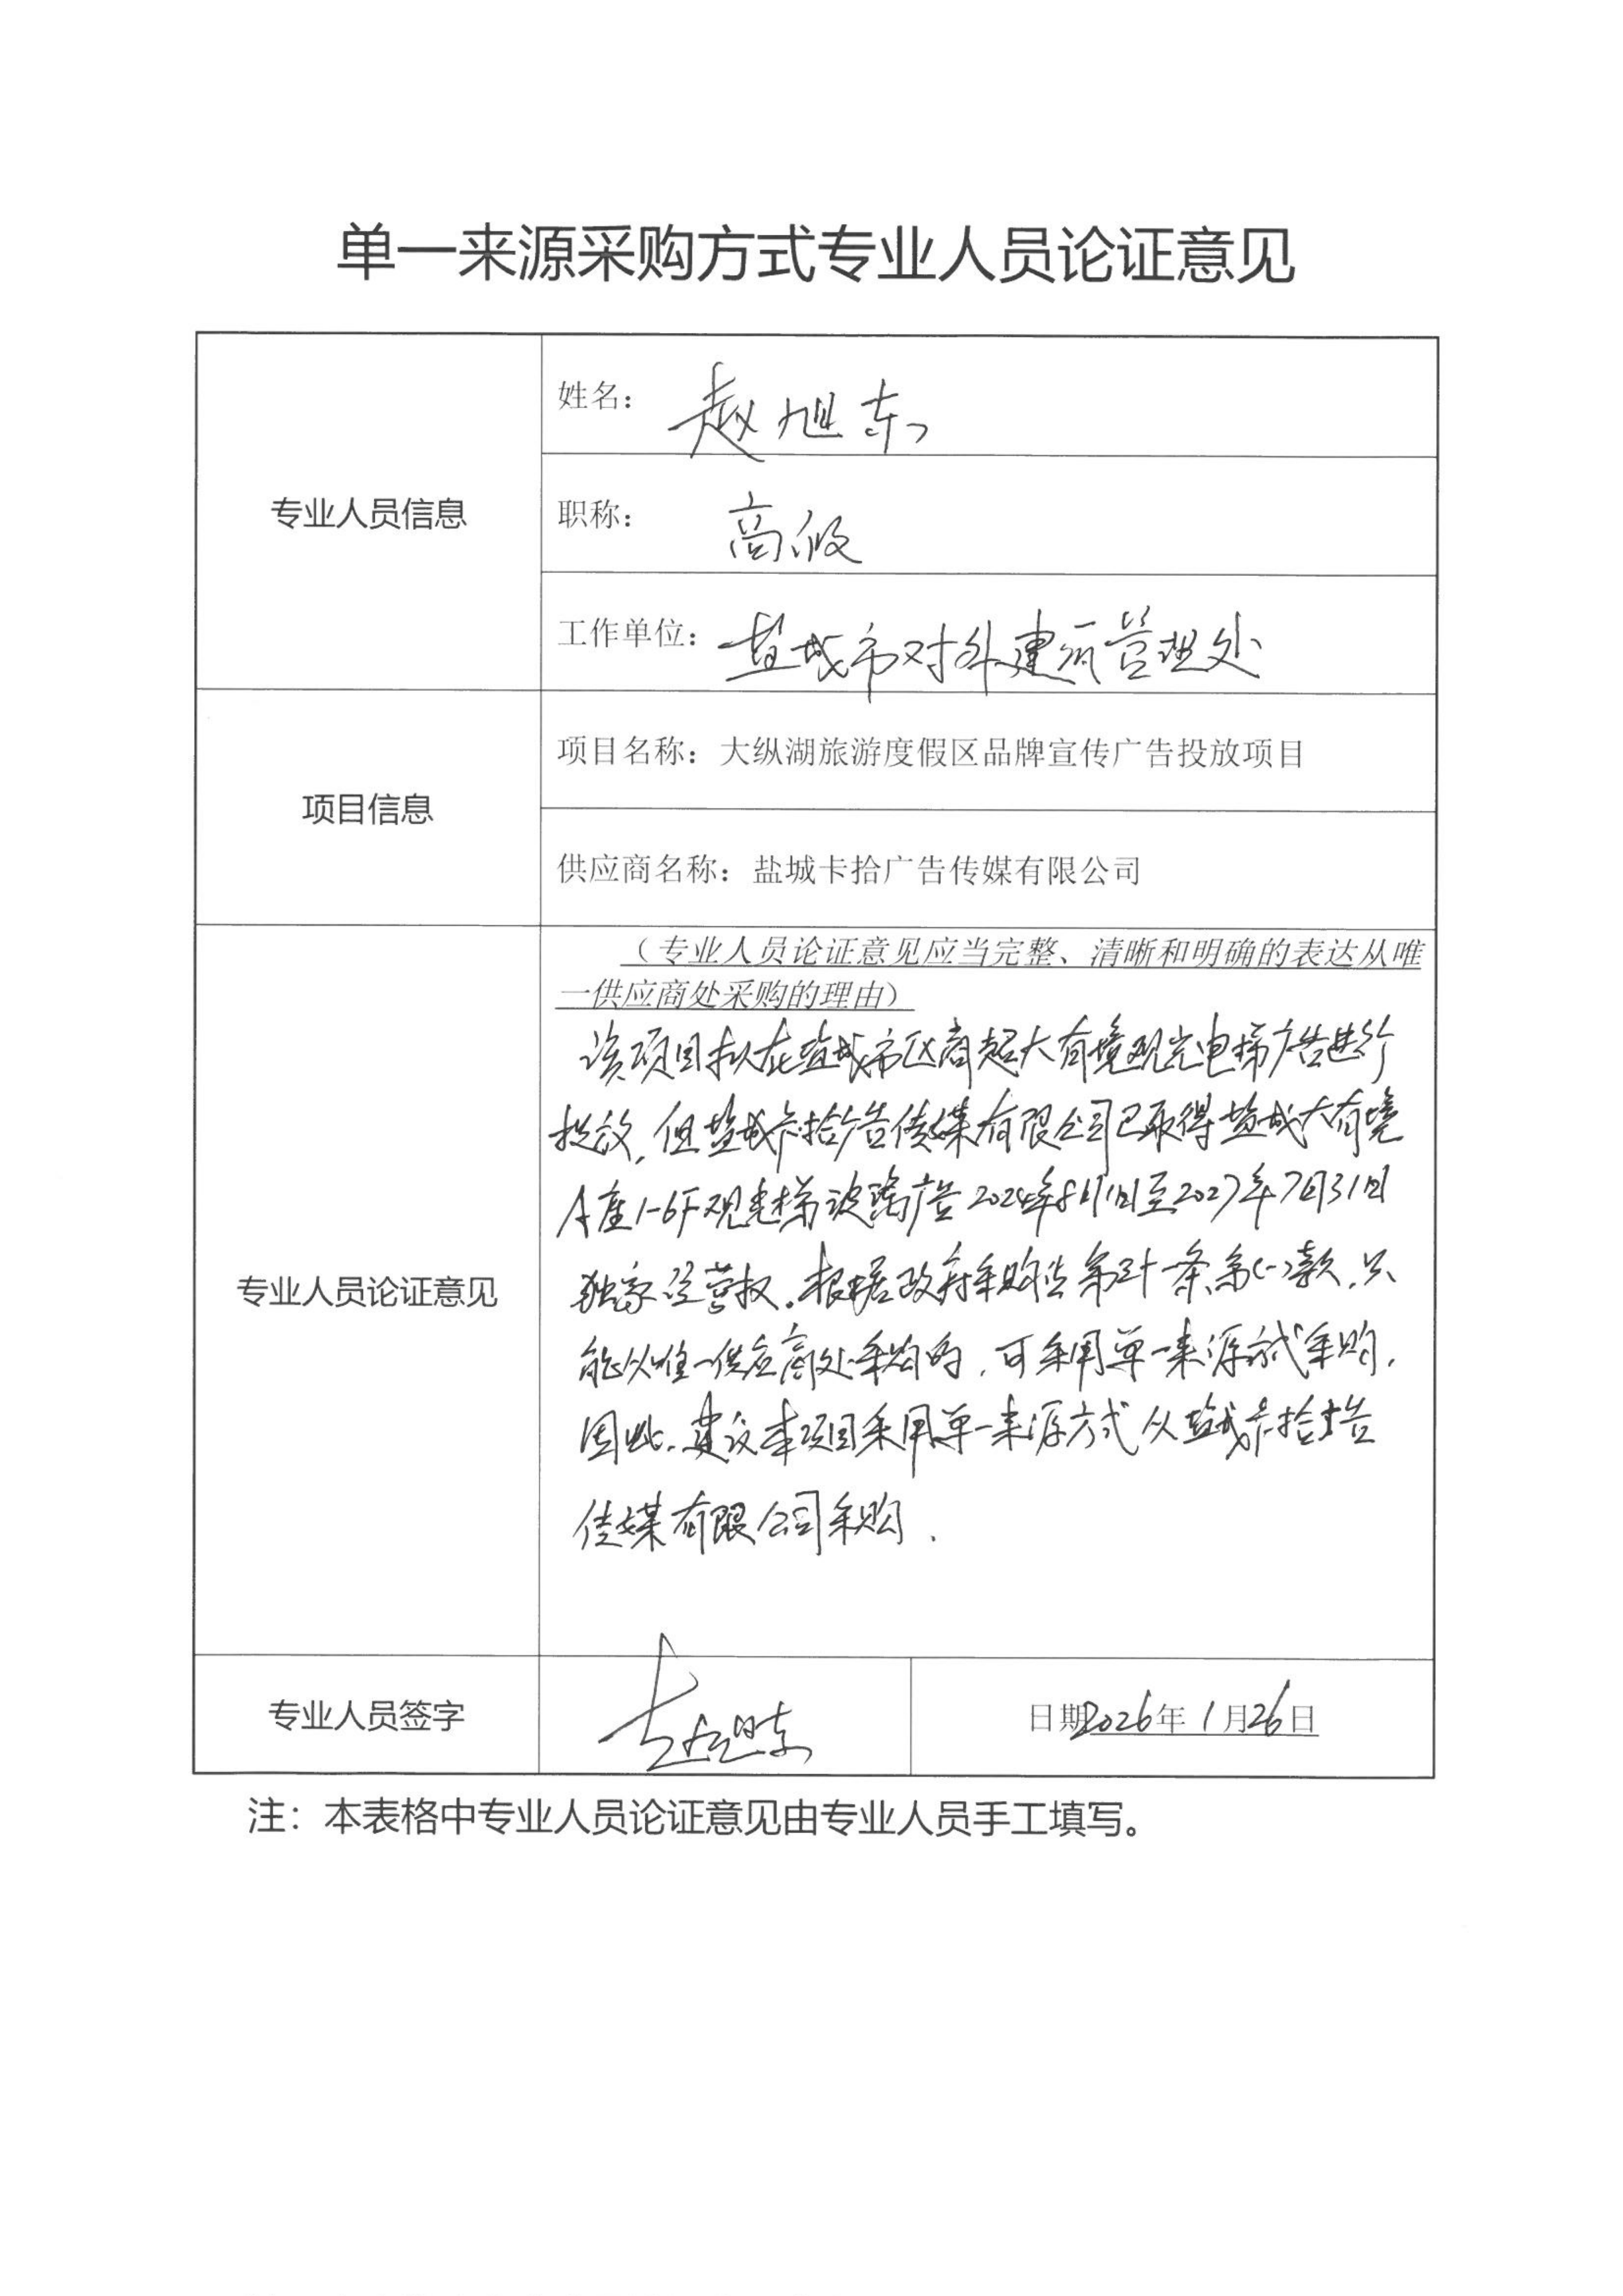 单一来源采购方式专业人员论证意见
专业人员信息
姓名：赵旭东
职称：高级
工作单位：盐城市对外建筑管理处
项目信息
项目名称：大纵湖旅游度假区品牌宣传广告投放项目
供应商名称：盐城卡拾广告传媒有限公司
专业人员论证意见
（专业人员论证意见应当完整、清晰和明确的表达从唯
一供应商处采购的理由）
该项目拟在盐城市区商超大有境观光电梯广告进行
投放，但盐城卡拾广告传媒有限公司已取得盐城大有境
A座1-6F观光梯玻璃广告2024年8月1日至2027年7月31日
独家经营权。根据政府采购法第三十一条第(一)款，只
能从唯一供应商处采购的，可采用单一来源方式采购，
因此，建议本项目采用单一来源方式从盐城卡拾广告
传媒有限公司采购.
专业人员签字
赵旭东
日期2026年1月26日
注：本表格中专业人员论证意见由专业人员手工填写。